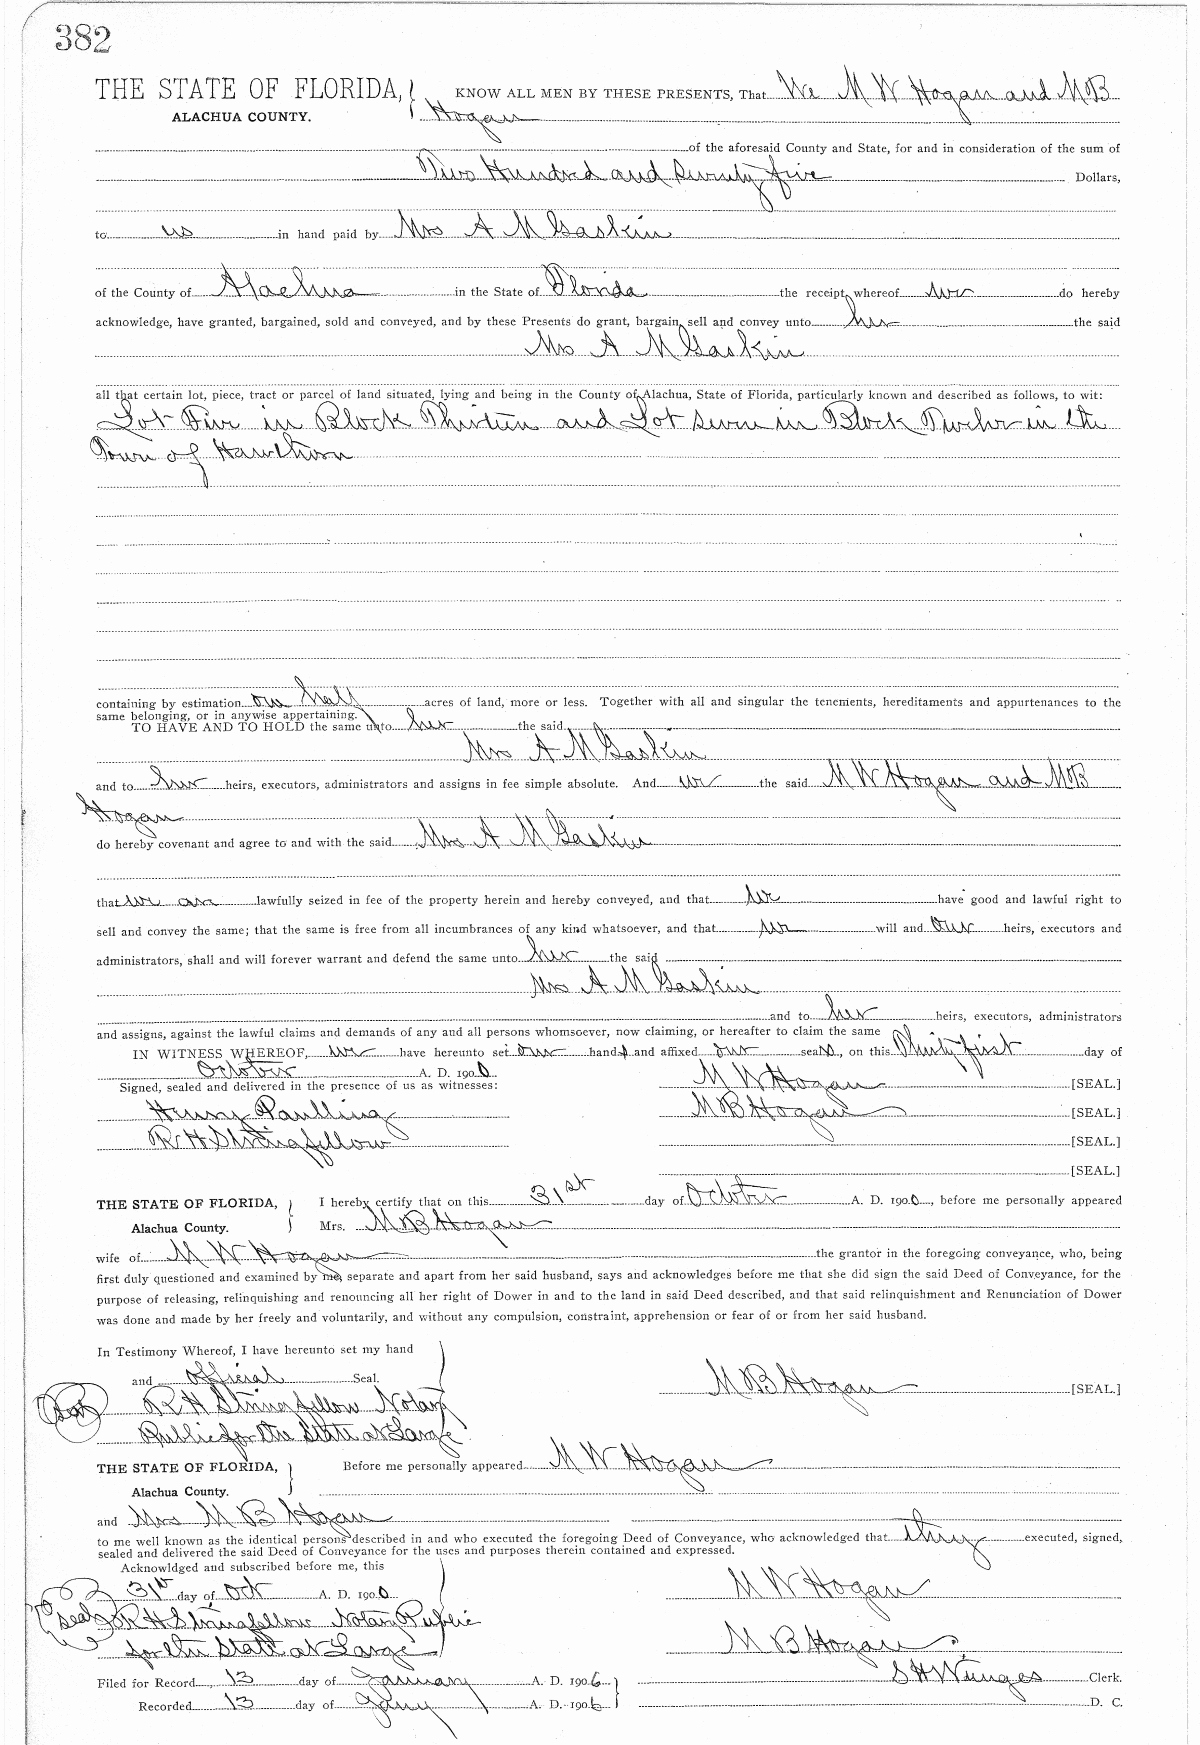 382
THE STATE OF FLORIDA, KNOW ALL MEN BY THESE PRESENTS, That We M W Hogan and M B
ALACHUA COUNTY. Hogan
of the aforesaid County and State, for and in consideration of the sum of
Two Hundred and Seventy five Dollars,
to us in hand paid by Mrs A M Gaskin
of the County of Alachua in the State of Florida the receipt whereof we do hereby
acknowledge, have granted, bargained, sold and conveyed, and by these Presents do grant, bargain, sell and convey unto her the said
Mrs A M Gaskin
all that certain lot, piece, tract or parcel of land situated, lying and being in the County of Alachua, State of Florida, particularly known and described as follows, to wit:
Lot Five in Block Thirteen and Lot Seven in Block Twelve in the
Town of Hawthorn
containing by estimation one half acres of land, more or less. Together with all and singular the tenements, hereditaments and appurtenances to the
same belonging, or in anywise appertaining.
TO HAVE AND TO HOLD the same unto her the said
Mrs A M Gaskin
and to her heirs, executors, administrators and assigns in fee simple absolute. And we the said M W Hogan and M B
Hogan
do hereby covenant and agree to and with the said Mrs A M Gaskin
that we are lawfully seized in fee of the property herein and hereby conveyed, and that we have good and lawful right to
sell and convey the same; that the same is free from all incumbrances of any kind whatsoever, and that we will and our heirs, executors and
administrators, shall and will forever warrant and defend the same unto her the said
Mrs A M Gaskin
and to her heirs, executors, administrators
and assigns, against the lawful claims and demands of any and all persons whomsoever, now claiming, or hereafter to claim the same
IN WITNESS WHEREOF, we have hereunto set our hands and affixed our seals, on this Thirty first day of
October A. D. 1900
Signed, sealed and delivered in the presence of us as witnesses: M W Hogan [SEAL.]
Henry Paulling M B Hogan [SEAL.]
R H Stringfellow [SEAL.]
[SEAL.]
THE STATE OF FLORIDA, I hereby certify that on this 31st day of October A. D. 1900, before me personally appeared
Alachua County. Mrs. M B Hogan
wife of M W Hogan the grantor in the foregoing conveyance, who, being
first duly questioned and examined by me, separate and apart from her said husband, says and acknowledges before me that she did sign the said Deed of Conveyance, for the
purpose of releasing, relinquishing and renouncing all her right of Dower in and to the land in said Deed described, and that said relinquishment and Renunciation of Dower
was done and made by her freely and voluntarily, and without any compulsion, constraint, apprehension or fear of or from her said husband.
In Testimony Whereof, I have hereunto set my hand
and official Seal. M B Hogan [SEAL.]
Seal R H Stringfellow Notary
Public for the State at Large
THE STATE OF FLORIDA, Before me personally appeared M W Hogan
Alachua County.
and Mrs M B Hogan
to me well known as the identical persons described in and who executed the foregoing Deed of Conveyance, who acknowledged that they executed, signed,
sealed and delivered the said Deed of Conveyance for the uses and purposes therein contained and expressed.
Acknowldged and subscribed before me, this
31st day of Oct A. D. 1900 M W Hogan
seal R H Stringfellow Notary Public
for the State at Large M B Hogan
Filed for Record 13 day of January A. D. 1906 S H Wienges Clerk.
Recorded 13 day of Jany A. D. 1906 D. C.